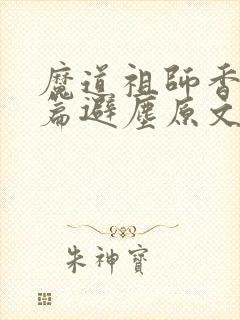 魔道祖師香
篇避塵原文
朱神寶